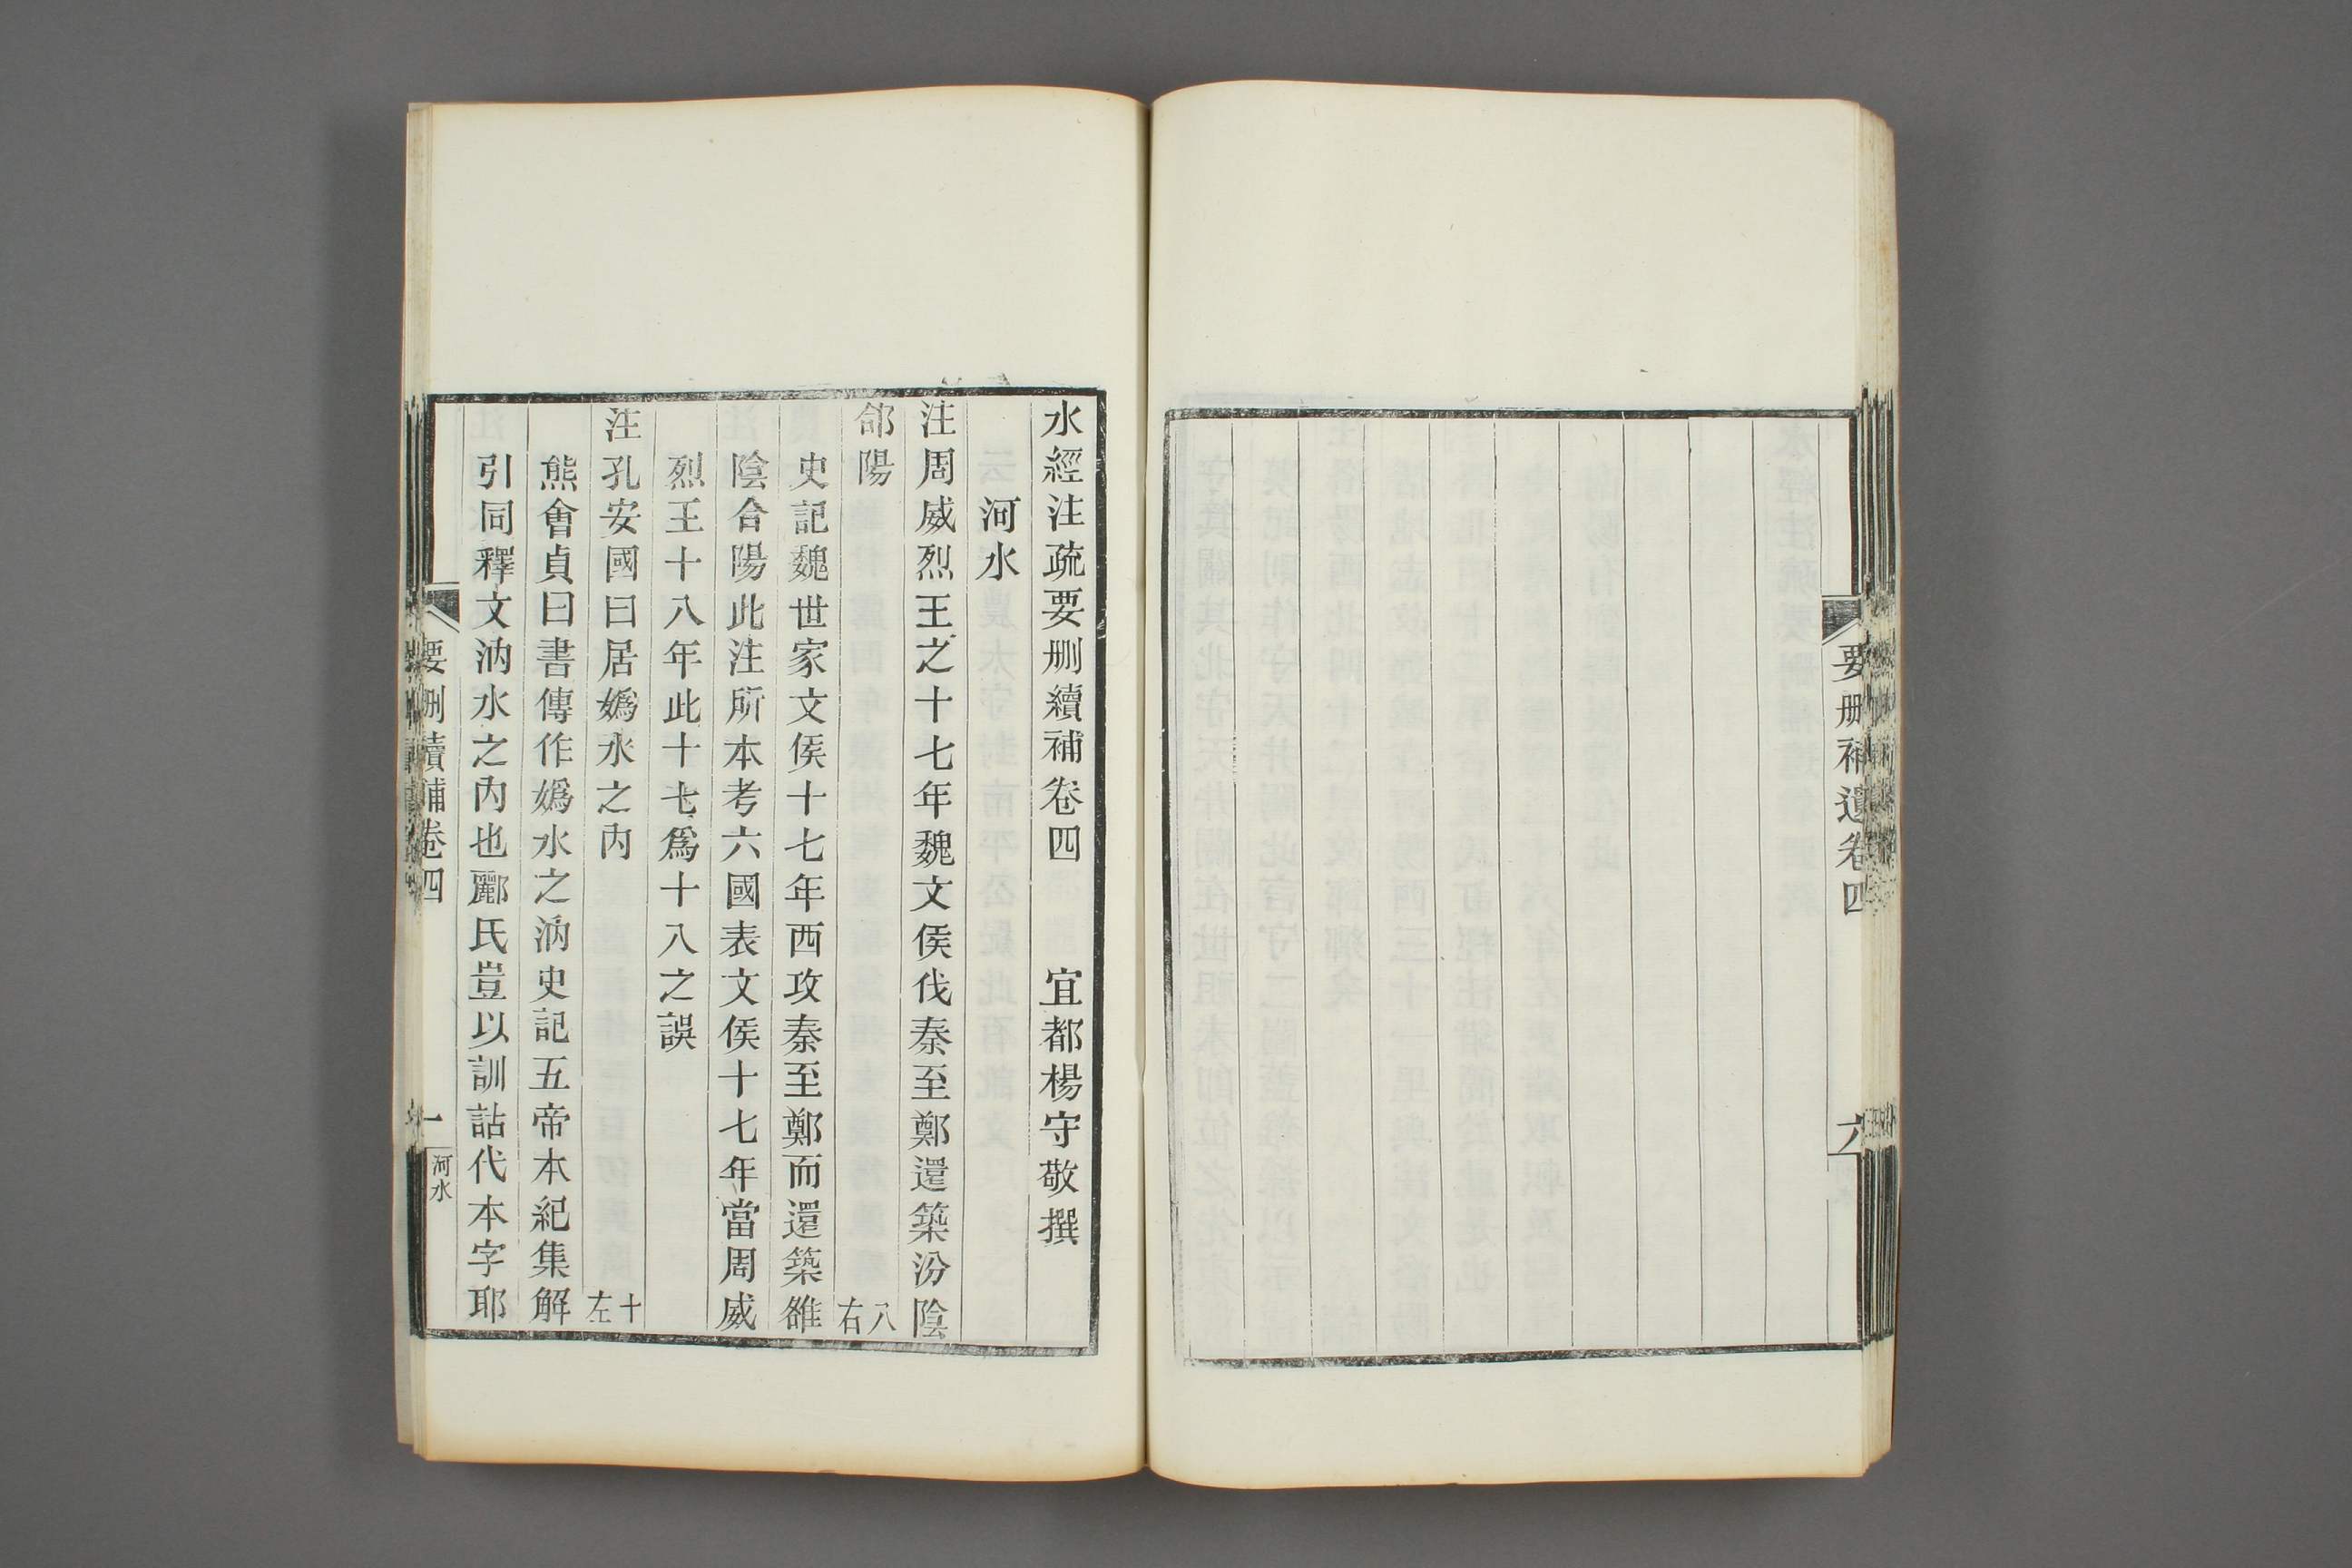 要刪補遺卷四
六
水經注疏要刪續補卷四 宜都楊守敬撰
河水
注周威烈王之十七年魏文侯伐秦至鄭還築汾陰
郃陽 八右
史記魏世家文侯十七年西攻秦至鄭而還築雒
陰合陽此注所本考六國表文侯十七年當周威
烈王十八年此十七爲十八之誤
注孔安國曰居嬀水之內 十左
熊會貞曰書傳作嬀水之汭史記五帝本紀集解
引同釋文汭水之內也酈氏豈以訓詁代本字耶
要刪續補卷四
一
河水